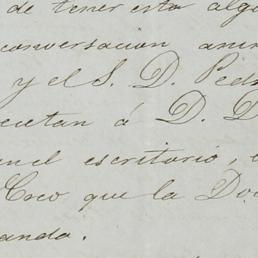 de tener esta alg
conversacion ani
y el S. D. Ped
cutan á D. D
en el escritorio,
Creo que la Do
ando.